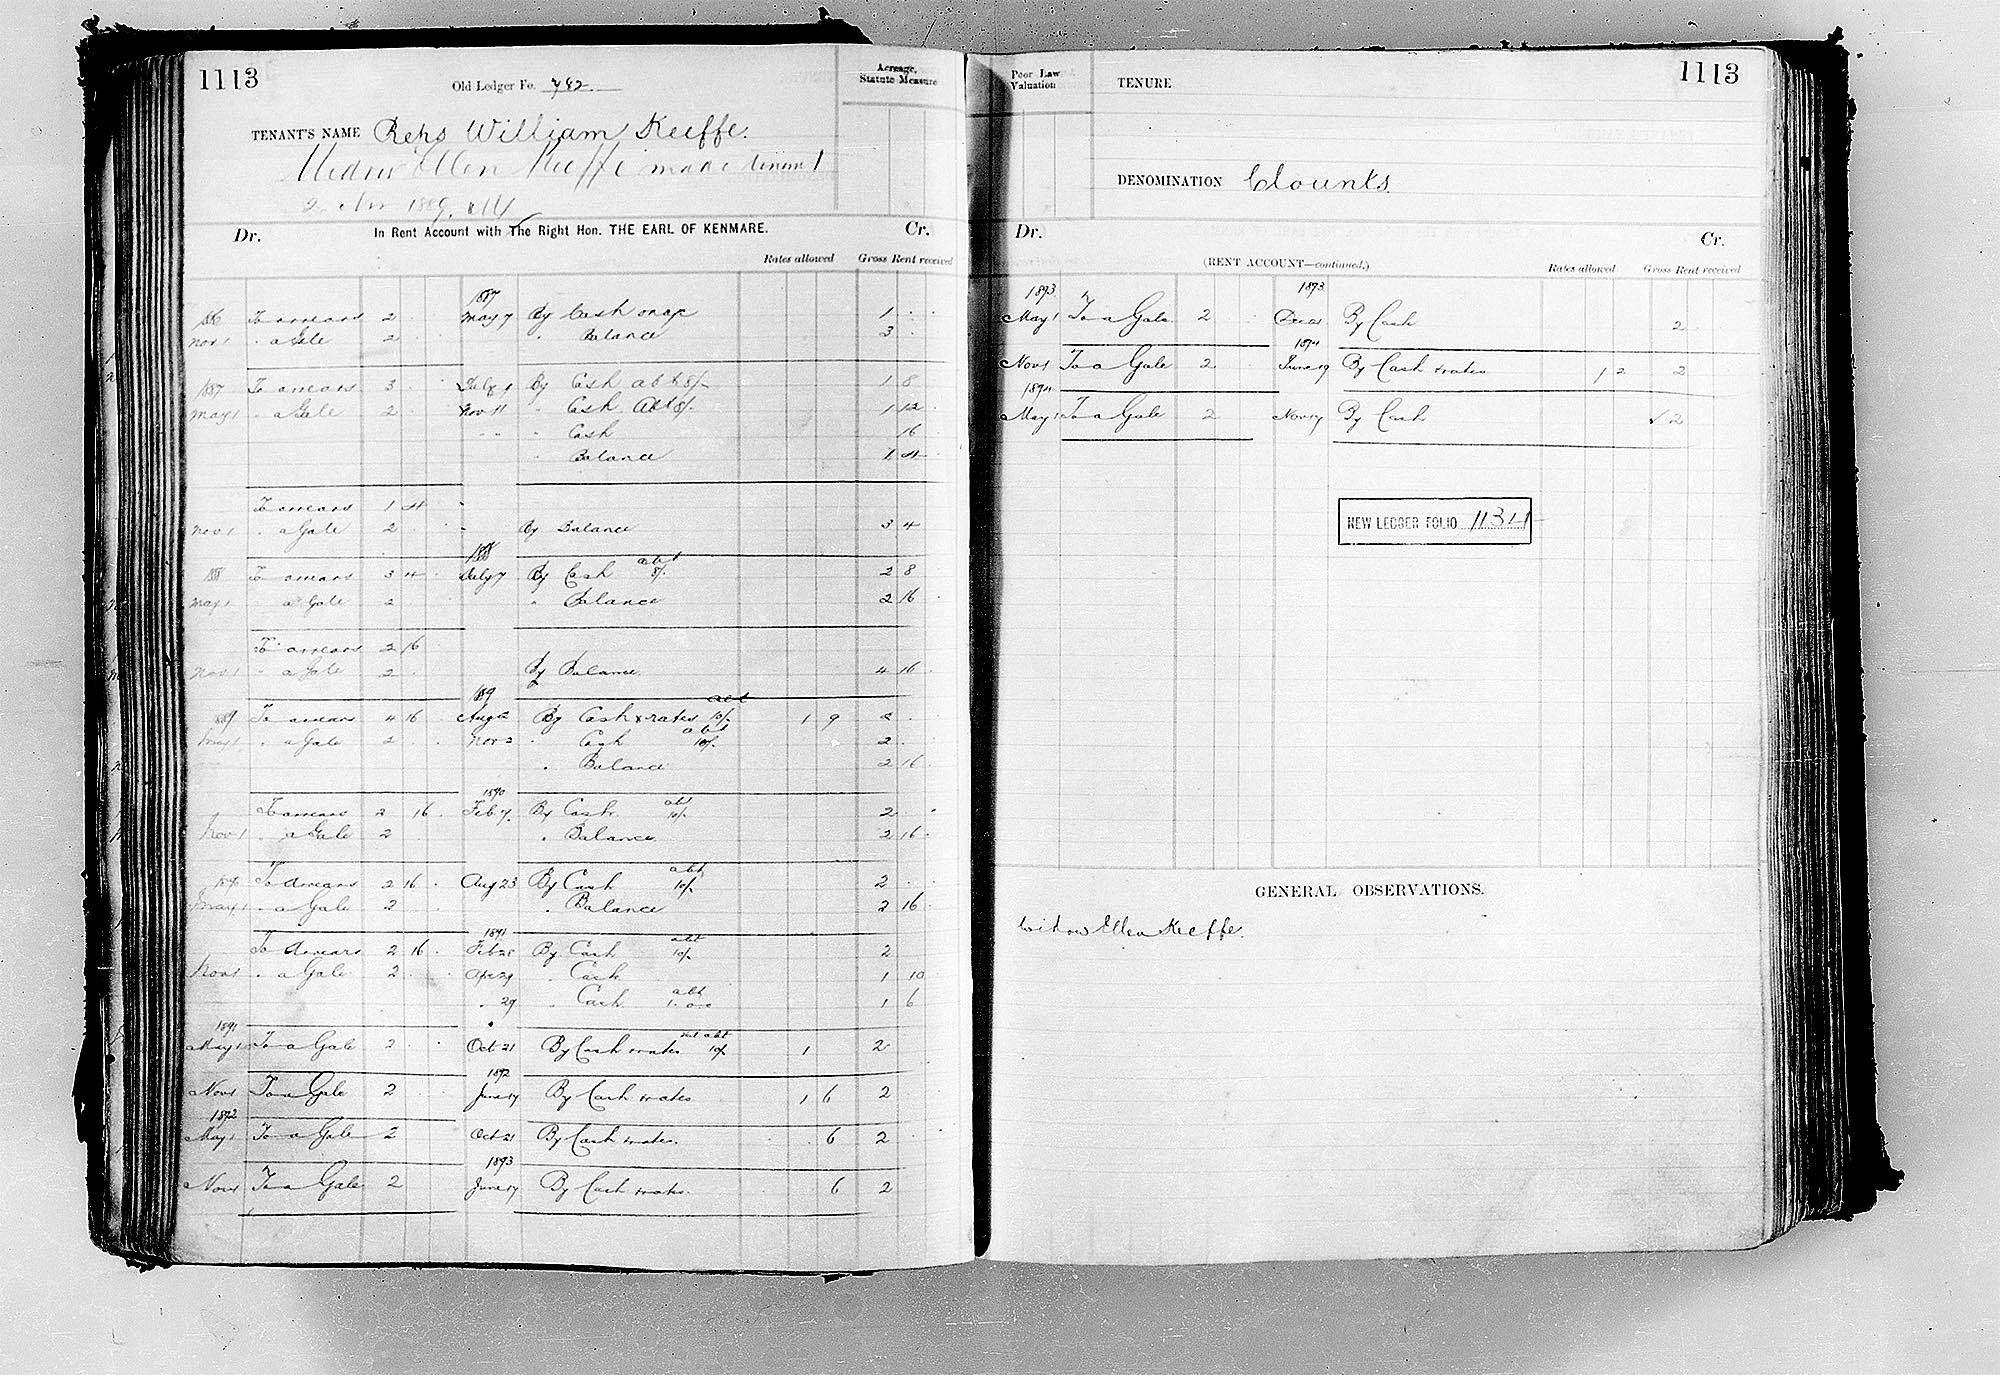 1113
Old Ledger Fo. 782
Acreage,
Statute Measure
TENANT'S NAME Reps William Keeffe.
Widow Ellen Keeffe made tenant
2 Nov 1889.
Dr. In Rent Account with The Right Hon. THE EARL OF KENMARE. Cr.
Rates allowed Gross Rent received
1887
1886 To arrears 2 May 7 By Cash on a/c 1
Nov 1 " a Gale 2 " Balance 3
1887 To arrears 3 July 1 By Cash abt 8/- 1 8
May 1 " a Gale 2 Nov 11 " Cash Abt 8/- 1 12
" " " Cash 16
" Balance 1 4
To arrears 1 4
Nov 1 " a Gale 2 By Balance 3 4
1888 abt
188 To arrears 3 4 July 7 By Cash 8/- 2 8
May 1 a Gale 2 " Balance 2 16
To arrears 2 16
Nov 1 " a Gale 2 By Balance 4 16
1889 abt
1889 To arrears 4 16 Aug 2 By Cash & rates 10/- 1 9 2
May 1 " a Gale 2 Nov 2 " Cash abt 10/- 2
" Balance 2 16
1890 abt
To arrears 2 16 Feb 7 By Cash 10/- 2
Nov 1 " a Gale 2 " Balance 2 16
abt
1890 To arrears 2 16 Aug 23 By Cash 10/- 2
May 1 " a Gale 2 " Balance 2 16
1891 abt
To arrears 2 16 Feb 28 By Cash 10/- 2
Nov 1 " a Gale 2 Apr 29 " Cash 1 10
" 29 " Cash abt 1.0.0 1 6
1891 abt
May 1 To a Gale 2 Oct 21 By Cash & rates 10/- 1 2
1892
Nov 1 To a Gale 2 June 17 By Cash & rates 1 6 2
1892
May 1 To a Gale 2 Oct 21 By Cash & rates 6 2
1893
Nov 1 To a Gale 2 June 17 By Cash & rates 6 2
Poor Law
Valuation
TENURE
1113
DENOMINATION Clounts
Dr. Cr.
(RENT ACCOUNT—continued.) Rates allowed Gross Rent received
1893 1893
May 1 To a Gale 2 Dec 21 By Cash 2
1894
Nov 1 To a Gale 2 June 19 By Cash & rates 1 2 2
1894
May 1 To a Gale 2 Nov 17 By Cash ✓ 2
NEW LEDGER FOLIO 1134
GENERAL OBSERVATIONS.
Widow Ellen Keeffe.